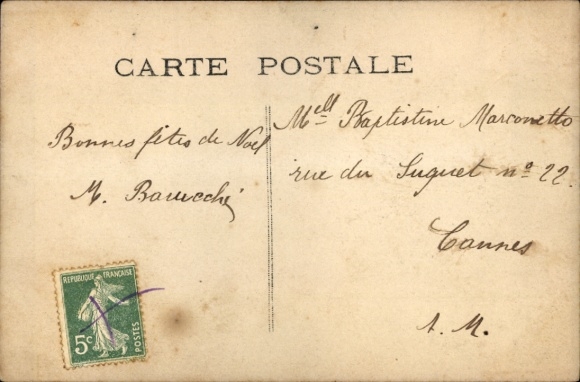 CARTE POSTALE
Bonnes fêtes de Noël
M. Barucchi
Melle Baptistine Marconetto
rue du Suquet no 22.
Cannes
A. M.
REPUBLIQUE FRANÇAISE
5c
POSTES